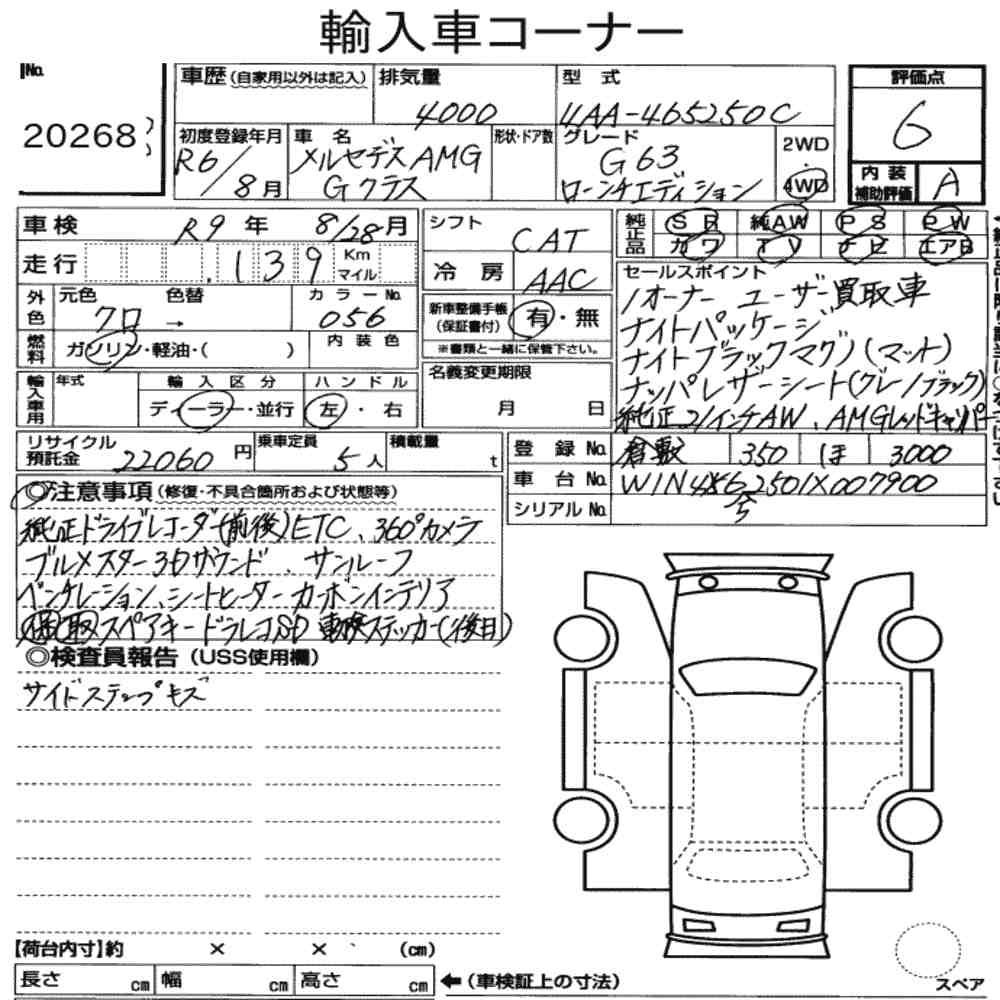 輸入車コーナー
No. 20268
車歴(自家用以外は記入) 排気量 4000 型式 4AA-465250C 評価点 6
初度登録年月 R6/8月 車名 メルセデスAMG Gクラス 形状・ドア数 グレード G63 ローンチエディション 2WD 4WD
内装補助評価 A
車検 R9年 8/28月 シフト CAT 純正品 SR 純AW PS PW
カワ TV ナビ エアB
走行 139 Km マイル 冷房 AAC
外色 元色 クロ → 色替 カラーNo. 056 新車整備手帳(保証書付) 有・無
燃料 ガソリン・軽油・( ) 内装色 ※書類と一緒に保管下さい。
セールスポイント
1オーナー ユーザー買取車
ナイトパッケージ
ナイトブラックマグノ(マット)
ナッパレザーシート(グレー/ブラック)
純正21インチAW、AMGレッドキャリパー
輸入車用 年式 輸入区分 ディーラー・並行 ハンドル 左・右 名義変更期限 月 日
リサイクル預託金 22060円 乗車定員 5人 積載量 t
登録No. 倉敷 350 ほ 3000
車台No.
シリアルNo.
◎注意事項(修復・不具合箇所および状態等)
純正ドライブレコーダ(前後)ETC、360°カメラ
ブルメスター3Dサウンド、サンルーフ
ベンチレーション、シートヒーター カーボンインテリア
保 取 スペアキー ドラレコSD 車検ステッカー(後日)
◎検査員報告(USS使用欄)
サイドステップキズ
【荷台内寸】約 × × (cm)
長さ cm 幅 cm 高さ cm ←(車検証上の寸法)
スペア